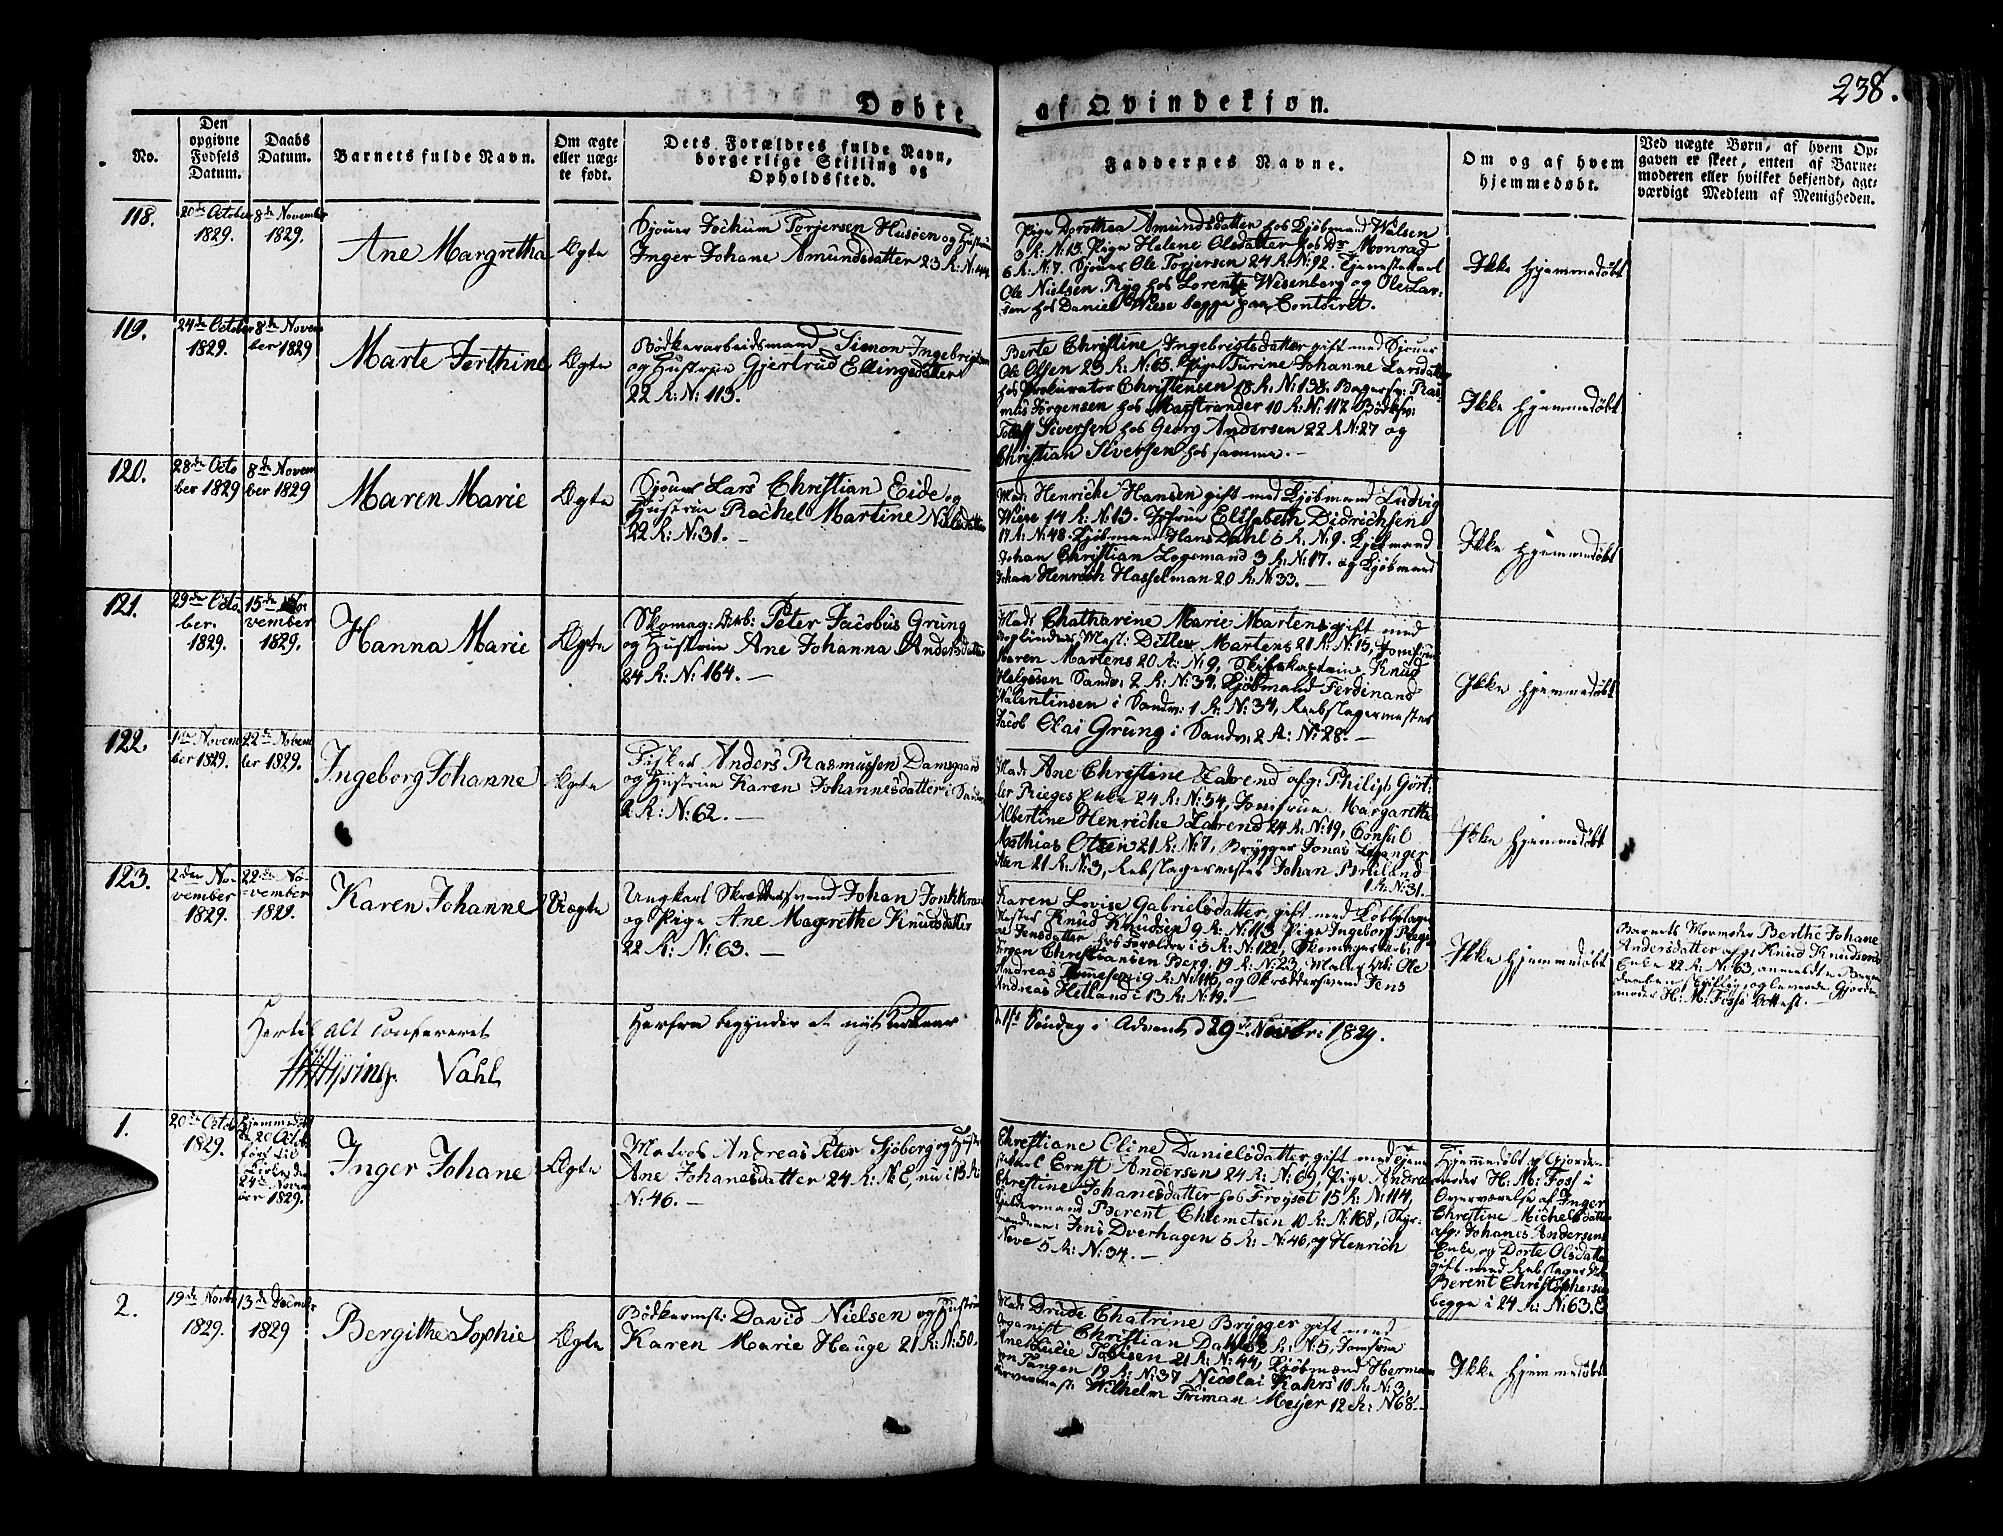 238.
Døbte af Qvindekjøn.
No.
Den opgivne Fødsels Datum.
Daabs Datum.
Barnets fulde Navn.
Om ægte eller uæg-
te født.
Dets Forældres fulde Navn,
borgerlige Stilling og
Opholdssted.
Faddernes Navne.
Om og af hvem
hjemmedøbt.
Ved uægte Børn, af hvem Op-
gaven er skeet, enten af Barne-
moderen eller hvilket bekjendt, agt-
værdigt Medlem af Menigheden.
118.
20de October
1829.
8de November
1829.
Ane Margretha
Ægte
Sjouer Jochum Torjersen Husøen og Hustrue
Inger Johane Amundsdatter 23 R: N: 44
Pige Dorothea Amundsdatter hos Kjøbmand Wilsen
3 R: N: 15. Pige Helene Olsdatter hos Dr Monrad
6 R: N: 7. Sjouer Ole Torjersen 24 R: N: 92. Tjenestekarl
Ole Nielsen Ryg hos Lorentz Wesenberg og Ole Lar-
sen hos Daniel Wiese begge paa Contoiret.
Ikke hjemmedøbt
119.
24de October
1829.
8de Novem
ber 1829
Marte Jerthine
Ægte
Bødkerarbeidsmand Simon Ingebrigtsen
og Hustrue Gjertrud Ellingsdatter
22 R: N: 113.
Berte Christine Ingebrigtsdatter gift med Sjouer
Ole Olsen 23 R: N: 65. Pige Turine Johanne Larsdatter
hos Procurator Christensen 18 R: N: 138. Bagersv: Ras-
mus Jørgensen hos Marstrander 10 R: N: 117 Bødksv:
Tolleff Siversen hos Georg Andersen 22 R N: 27 og
Christian Siversen hos samme. —
Ikke hjemmedøbt
120.
28de Octo
ber 1829
8de Novem
ber 1829
Maren Marie
Ægte
Sjouer Lars Christian Eide og
Hustrue Rachel Martine Nielsdatter
22 R: N: 31. —
Mad: Henriche Hansen gift med Kjøbmand Ludvig
Wiese 14 R: N: 13. Jfrue Elisabeth Didrichsen
17 R: N: 48. Kjøbmand Hans Dahl 5 R: N: 9. Kjøbmand
Johan Christian Logemand 3 R: N: 17. og Kjøbmand
Johan Henrich Hasselman 20 R: N: 33. —
Ikke hjemmedøbt
121.
29de Octo
ber.
1829.
15de No
vember
1829.
Hanna Marie
Ægte
Skomag: Arb: Peter Jacobus Grung
og Hustrue Ane Johanna Andersdatter
24 R: N: 164. —
Mad: Chatharine Marie Martens gift med
Mast: Ditlev Martens 21 R: N: 15, Jomfrue
Maren Martens 20 R: N: 9, Skibskaptein Knud
Helgesen Sandv: 2 R: N: 34, Kjøbmand Ferdinand
Valentinsen i Sandv: 1 R: N: 34, Rebslagermester
Jacob Olai Grung i Sandv: 2 R: N: 28. —
Ikke hjemmedøbt
122.
Novem
ber 1829.
22de Novem
ber 1829.
Ingeborg Johanne
Ægte
Fisker Anders Rasmussen Damsgaard
og Hustrue Karen Johannesdatter i Sandv:
2 R: N: 62. —
Mad: Ane Christine afg: Philip Gört-
ler Prieges Enke 24 R: N: 54, Jomfrue Margaretha
Albertine Henriche 24 R: N: 19, Consul
Mathias Olsen 21 R: N: 7, Brygger Jonas Leganger
Steen 21 R: N: 3, Rebslagermester Johan
1 R: N: 31. —
Ikke hjemmedøbt
123.
2den No-
vember
1829.
22de No-
vember
1829.
Karen Johanne
Uægte
Ungkarl Skræddersvend Johan
og Pige Ane Magrethe Knudsdatter
22 R: N: 63. —
Karen Lovise Gabrielsdatter gift med
Mester Knud Knudsen 9 R: N: 113 Pige Ingeborg
Jensdatter hos Forældre i 5 R: N: 122, Skomagerarb:
Jørgen Christiansen Berg 19 R: N: 23, Maler Ole
Andreas i 9 R: N: 115, og Skræddersvend Jens
Andreas Hetland i 13 R: N: 19. —
Ikke hjemmedøbt
Barnets Mormoder Berthe Johane
Andersdatter afg: Knud Knudsens
Enke 22 R: N: 63, anmeldte Barne
daaben og leverede Gjorde-
moder H: M: Foss Attest. —
Hertil alt confereret
Hysing Vahl
Herfra begynder et nyt Kirkeaar
1ste Søndag i Advent d 29de Novbr: 1829.
1.
20de Octob
1829.
Hjemmedøbt
20 Octob
1829.
Inger Johane
Ægte
Matros Andreas Peter Sjöberg og Hustr:
Ane Johanesdatter 24 R: N: E, nu i 13 R:
N: 46. —
Christiane Oline Danielsdatter gift med
Ernst Andersen 24 R: N: 69, Pige
Christine Johanesdatter hos Froyset 15 R: N: 114,
Berent Clemetsen 10 R: N: 168, Styr-
mændene Jens Dverhagen 5 R: N: 46, og Henrich
Neve 5 R: N: 34. —
Hjemmedøbt af Gjorde-
moder H: M: Foss i
Overværelse af Inger
Christine Michelsdatter
afg: Johanes Andersens
Enke, og Dorte Olsdatter
gift med Rebslager
Berent Christophersen
begge i 24 R: N: 63. E
2.
19de Novbr
1829.
13de Decmbr
1829
Bergithe Sophie
Ægte
Bødkermst: David Nielsen og Hustrue
Karen Marie Hauge 21 R: N: 50. —
Mad: Drude Chatrine Brygger gift med
Organist Christian Dahl 2 R: N: 5, Jomfrue
Ane Lucie Tobisen 21 R: N: 44, Kjøbmænd Herman
von Tangen 19 R: N: 37 Nicolai Kahrs 10 R: N: 3,
Wilhelm Friman Meyer 12 R: N 68 —
Ikke hjemmedøbt